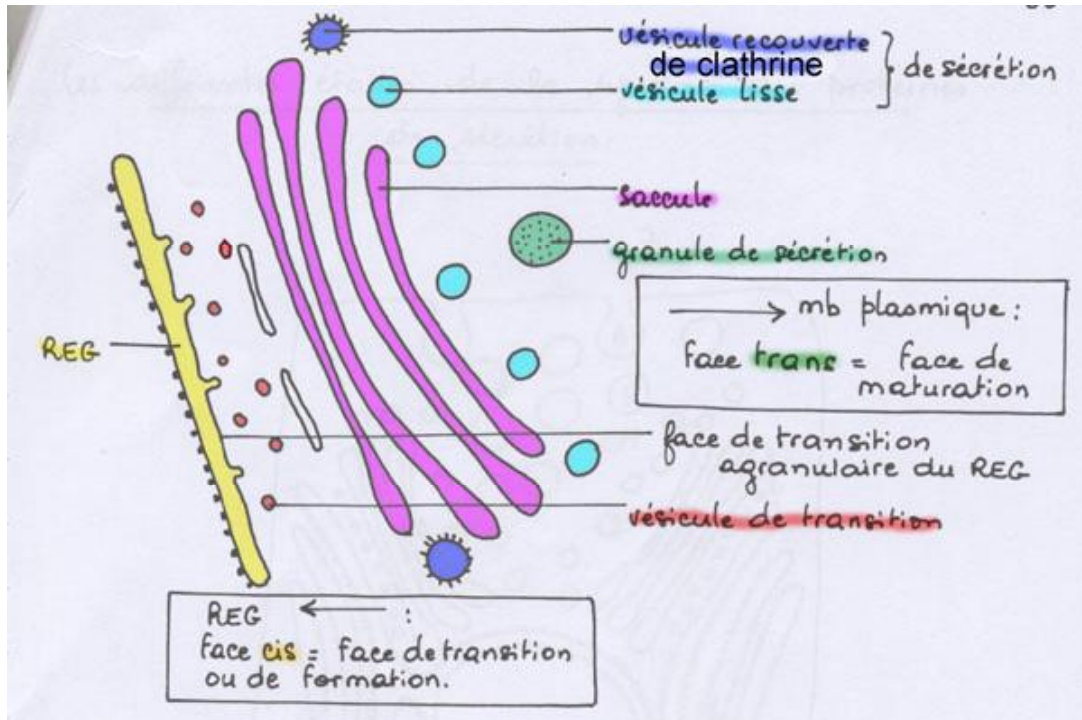 vésicule recouverte
de clathrine
vésicule lisse
de sécrétion
saccule
granule de sécrétion
mb plasmique :
face trans = face de
maturation
REG
face de transition
agranulaire du REG
vésicule de transition
REG ← :
face cis = face de transition
ou de formation.